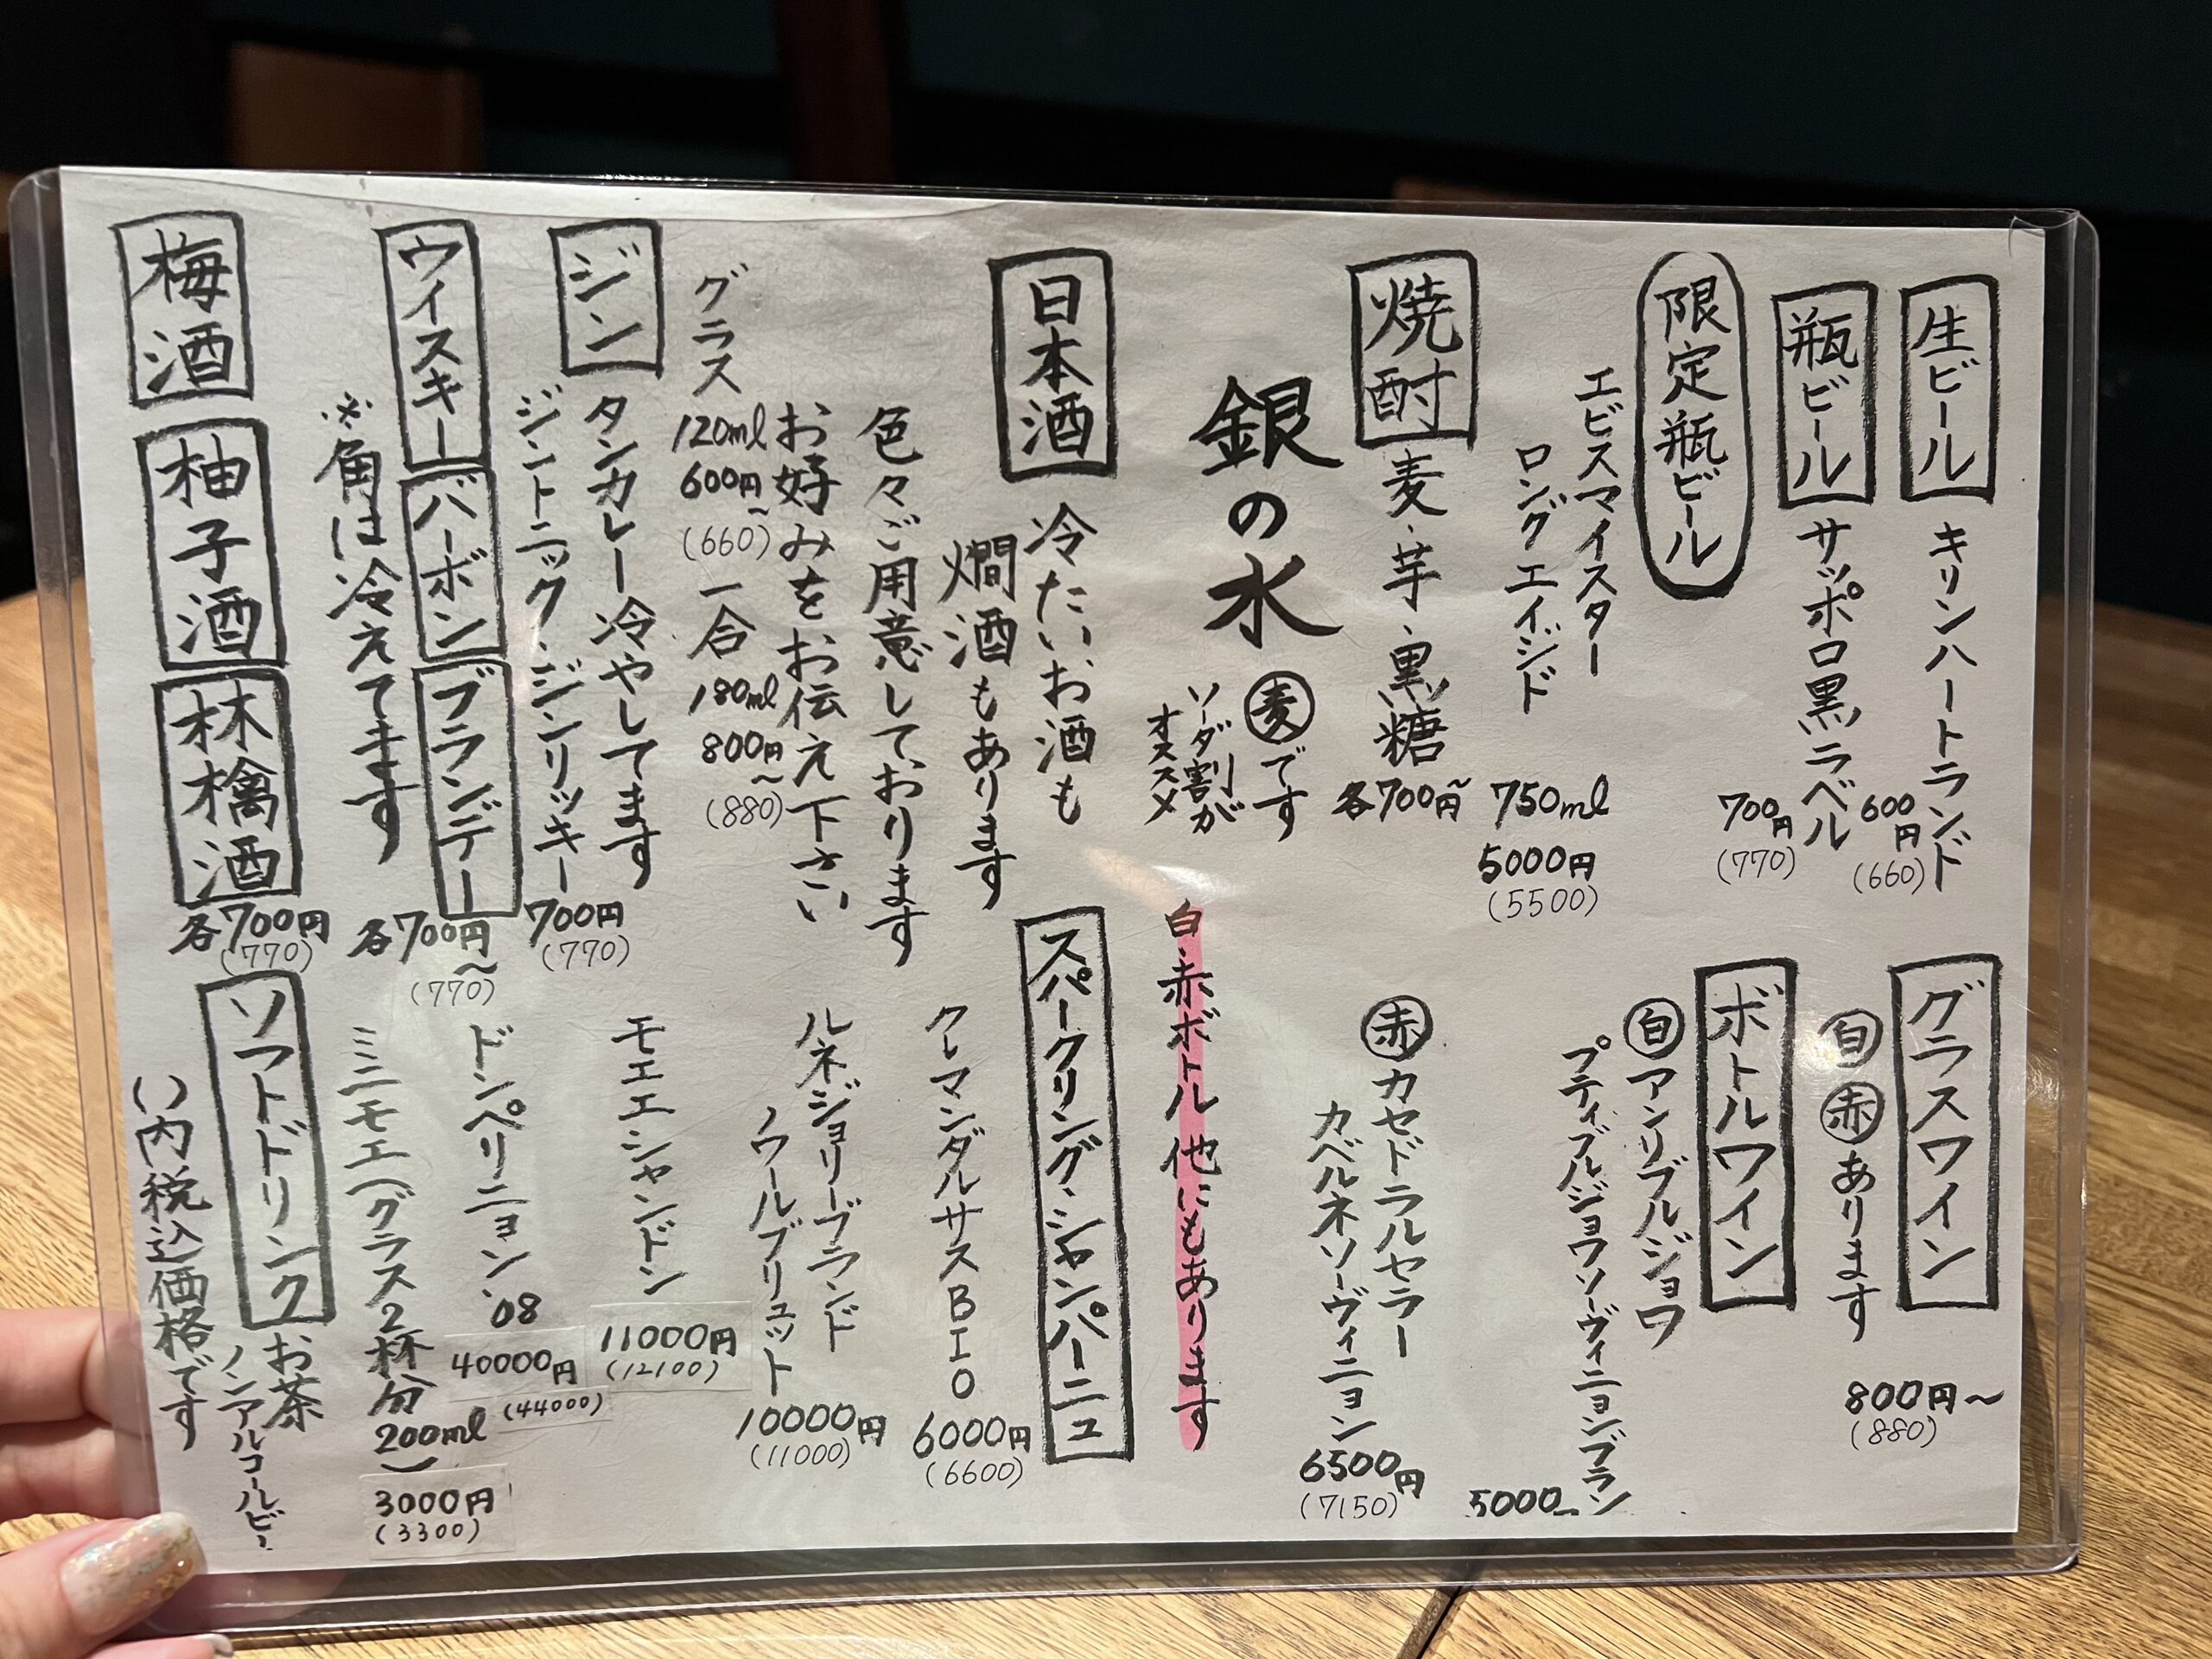 生ビール
キリンハートランド
600円
(660)
瓶ビール
サッポロ黒ラベル
700円
(770)
限定瓶ビール
エビスマイスター
ロングエイジド
750ml
5000円
(5500)
焼酎
麦・芋・黒糖
各700円~
銀の水
麦です
ソーダ割が
オススメ
日本酒
冷たいお酒も
燗酒もあります
色々ご用意しております
お好みをお伝え下さい
グラス
120ml
600円~
(660)
一合
180ml
800円~
(880)
ジン
タンカレー冷やしてます
ジントニック・ジンリッキー
700円
(770)
ウイスキー
バーボン
ブランデー
※角は冷えてます
各700円~
(770)
梅酒
柚子酒
林檎酒
各700円
(770)
グラスワイン
白 赤 あります
800円~
(880)
ボトルワイン
白 アンリブルジョワ
プティブルジョワソーヴィニョンブラン
5000
赤 カセドラルセラー
カベルネソーヴィニョン
6500円
(7150)
白・赤ボトル他にもあります
スパークリング・シャンパーニュ
クレマンダルサスBIO
6000円
(6600)
ルネジョリーブランド
ノワールブリュット
10000円
(11000)
モエエシャンドン
11000円
(12100)
ドンペリニョン'08
40000円
(44000)
ミニモエ(グラス2杯分
200ml)
3000円
(3300)
ソフトドリンク
お茶
ノンアルコールビー
()内税込価格です